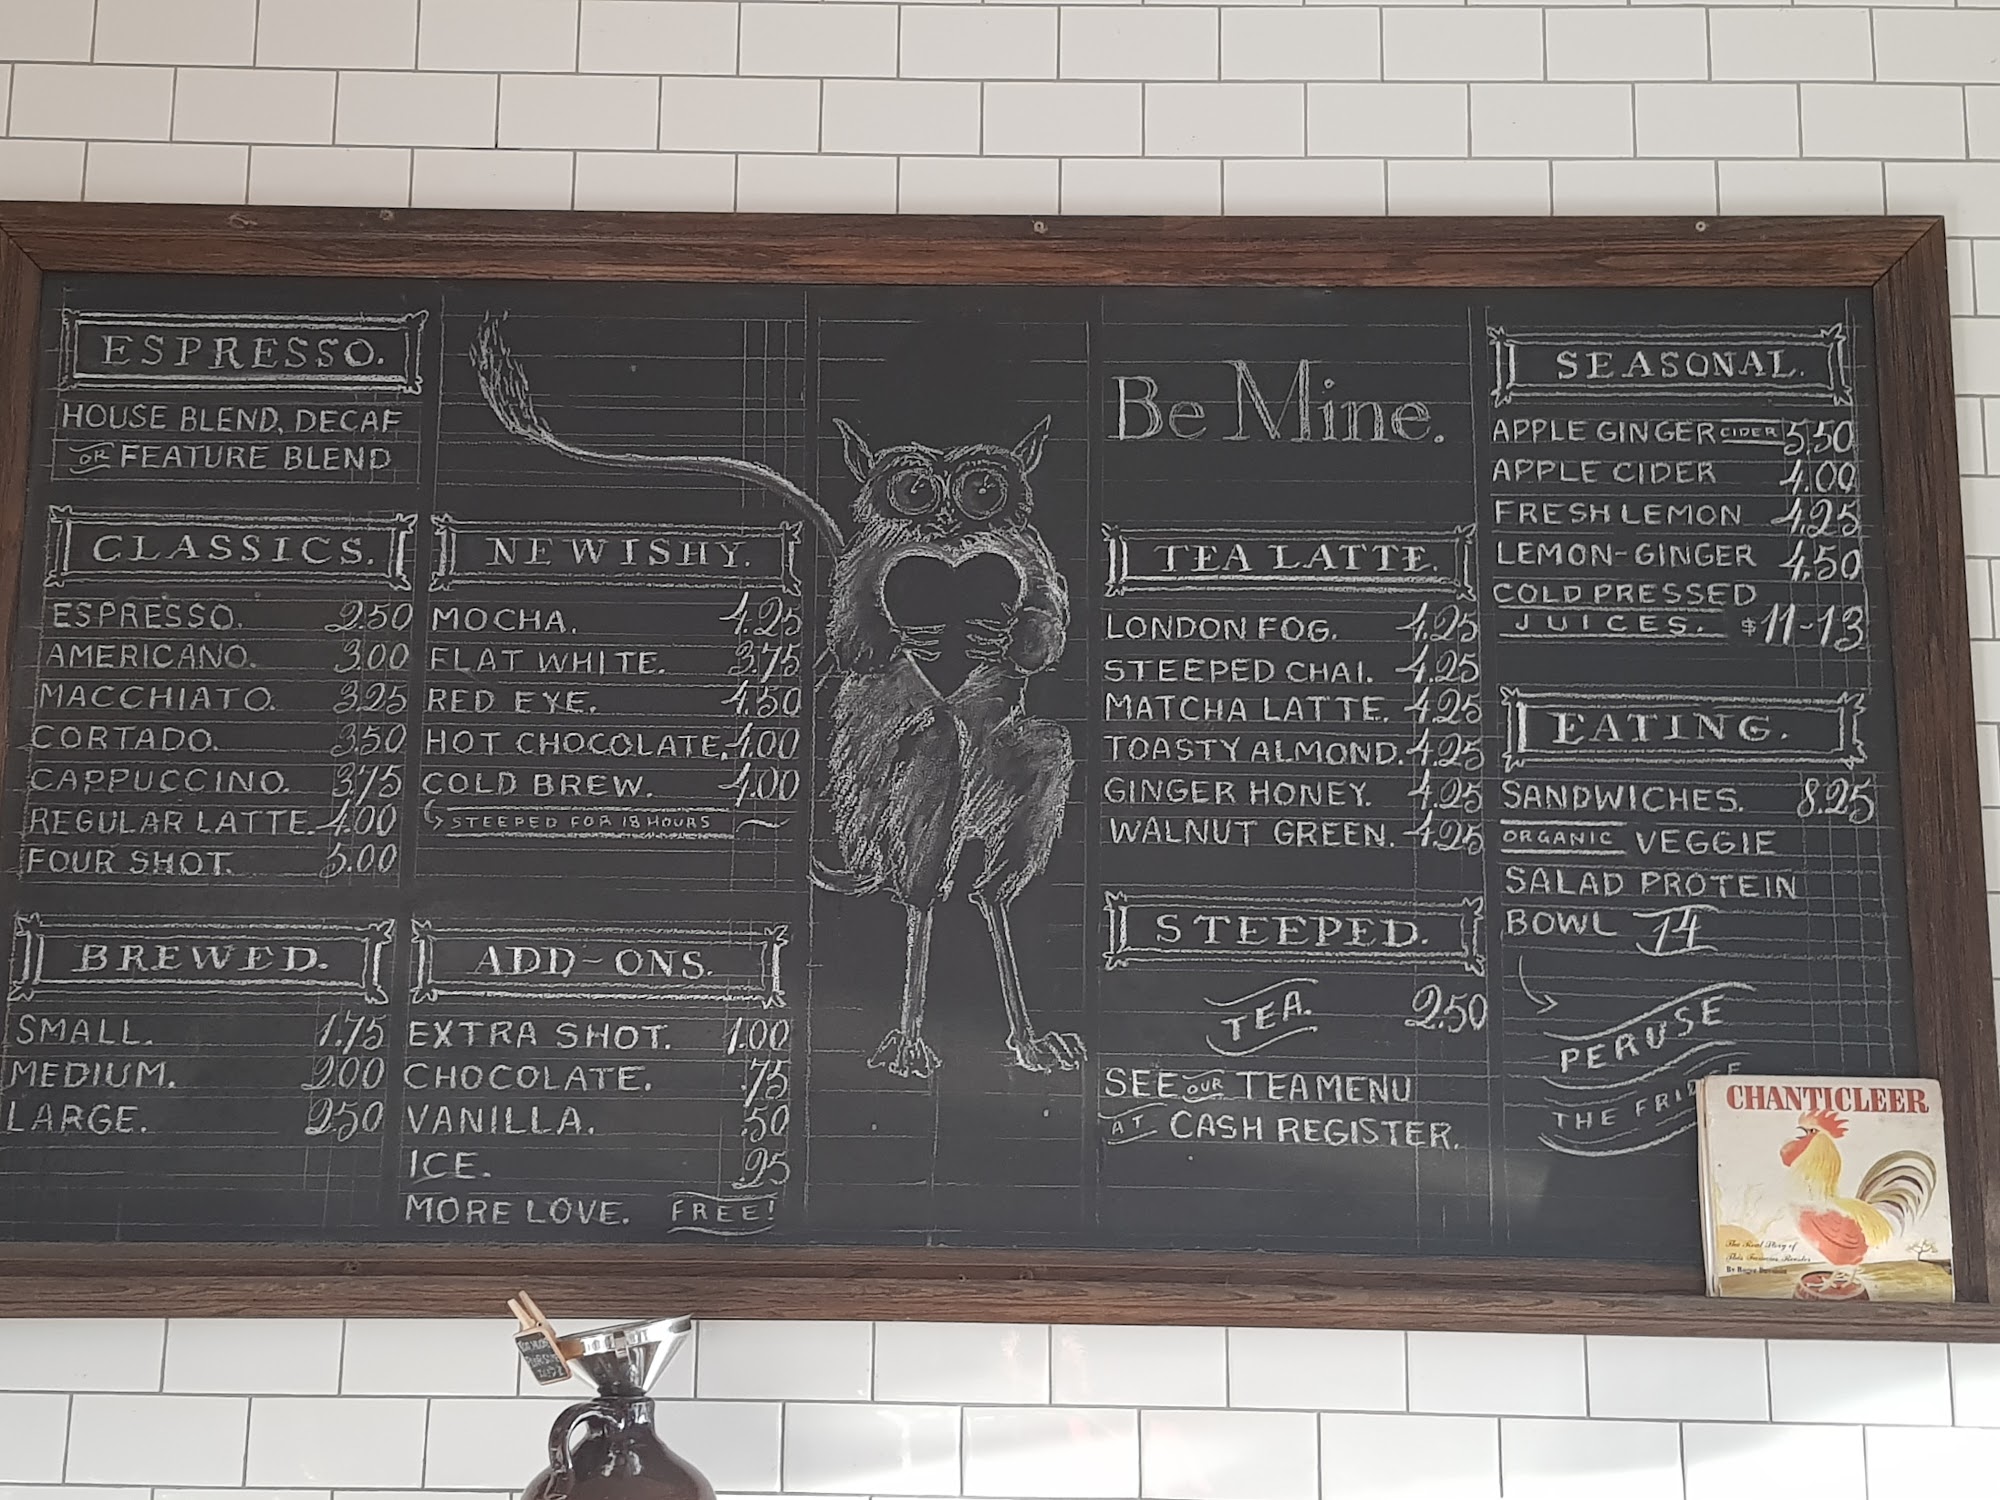 ESPRESSO.
HOUSE BLEND, DECAF
OR FEATURE BLEND
CLASSICS.
ESPRESSO. 2.50
AMERICANO. 3.00
MACCHIATO. 3.25
CORTADO. 3.50
CAPPUCCINO. 3.75
REGULAR LATTE. 4.00
FOUR SHOT. 5.00
BREWED.
SMALL. 1.75
MEDIUM. 2.00
LARGE. 2.50
NEWISHY.
MOCHA. 4.25
FLAT WHITE. 3.75
RED EYE. 4.50
HOT CHOCOLATE. 4.00
COLD BREW. 4.00
STEEPED FOR 18 HOURS
ADD-ONS.
EXTRA SHOT. 1.00
CHOCOLATE. .75
VANILLA. .50
ICE. .25
MORE LOVE. FREE!
Be Mine.
TEA LATTE.
LONDON FOG. 4.25
STEEPED CHAI. 4.25
MATCHA LATTE. 4.25
TOASTY ALMOND. 4.25
GINGER HONEY. 4.25
WALNUT GREEN. 4.25
STEEPED.
TEA. 2.50
SEE OUR TEA MENU
AT CASH REGISTER.
SEASONAL.
APPLE GINGER CIDER 5.50
APPLE CIDER 4.00
FRESH LEMON 4.25
LEMON-GINGER 4.50
COLD PRESSED
JUICES. $11-13
EATING.
SANDWICHES. 8.25
ORGANIC VEGGIE
SALAD PROTEIN
BOWL 14
PERUSE
THE FRIDGE
CHANTICLEER
The Real Story of
This Famous Rooster
By Roger Duvoisin